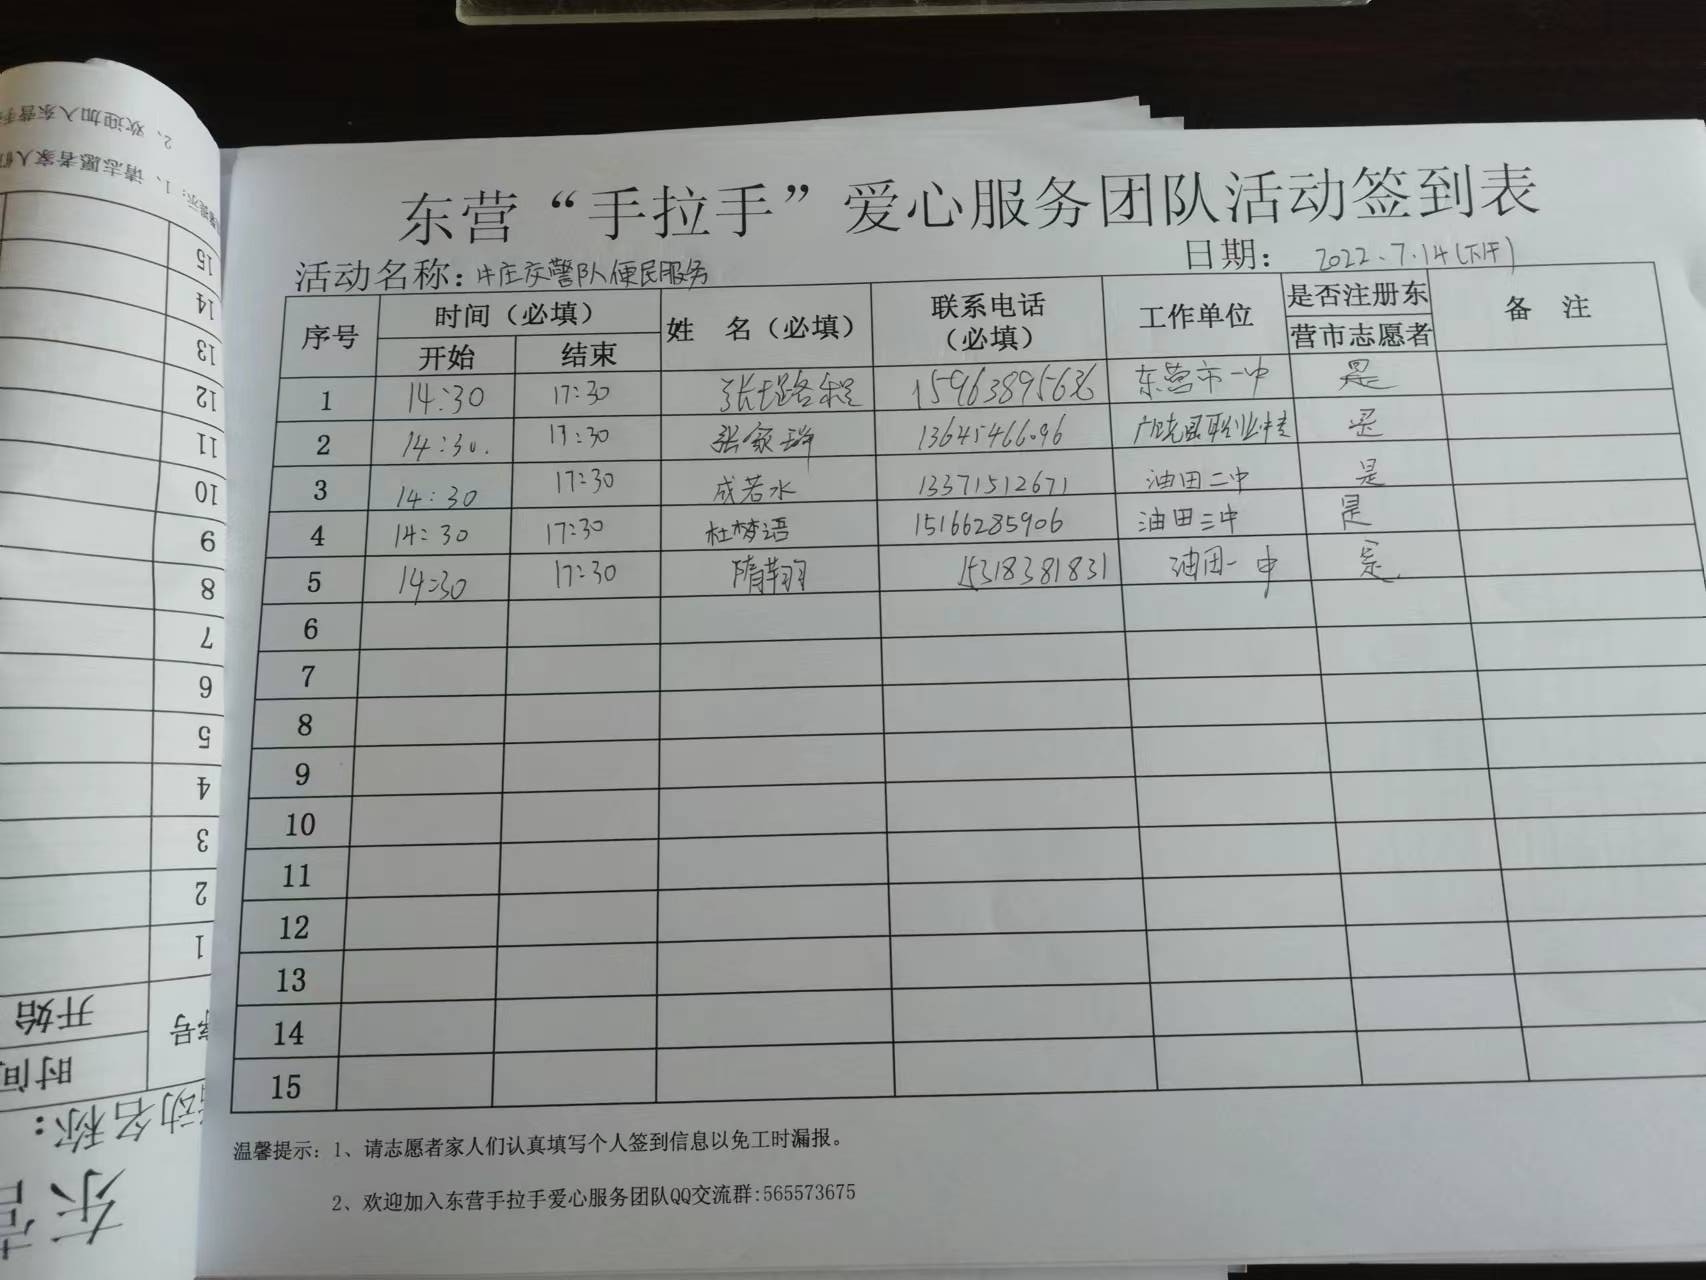 东营“手拉手”爱心服务团队活动签到表
活动名称：牛庄交警队便民服务 日期： 2022.7.14(下午)
序号 时间（必填） 姓 名（必填） 联系电话（必填） 工作单位 是否注册东营市志愿者 备 注
开始 结束
1 14:30 17:30 15963895636 东营市一中 是
2 14:30. 17:30 张家瑞 13645466096 是
3 14:30 17:30 成若水 13371512671 油田二中 是
4 14:30 17:30 杜梦语 15166285906 油田三中 是
5 14:30 17:30 隋翔 15318381831 油田一中 是
6
7
8
9
10
11
12
13
14
15
温馨提示：1、请志愿者家人们认真填写个人签到信息以免工时漏报。
2、欢迎加入东营手拉手爱心服务团队QQ交流群:565573675
2、欢迎加入东营手
提示：1、请志愿者家人们
15
14
13
12
11
10
9
8
7
6
5
4
3
2
1
开始
序号
时间
活动名称：
东营